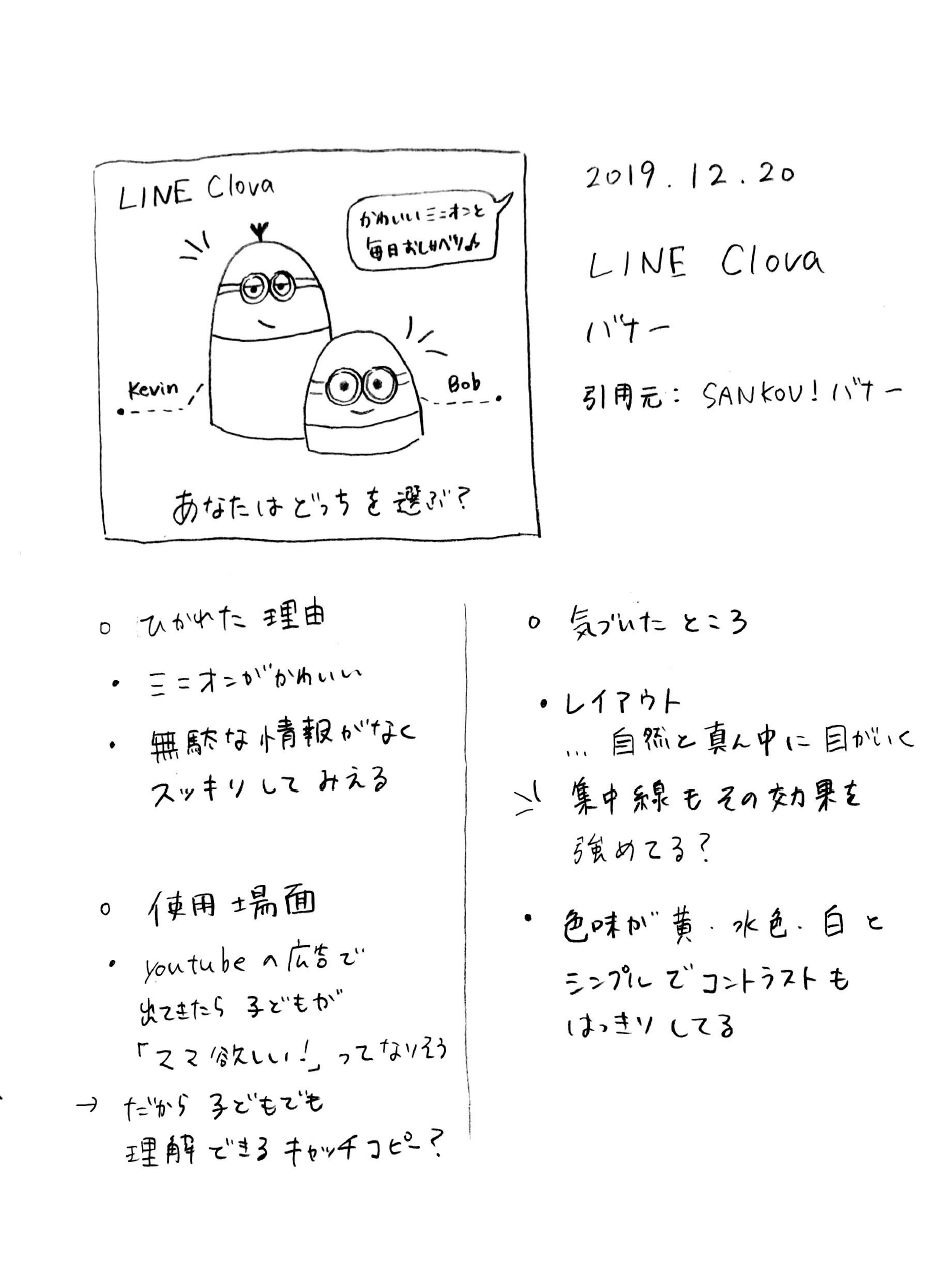 LINE Clova
かわいいミニオンと
毎日おしゃべり♪
Kevin
Bob
あなたはどっちを選ぶ?
2019.12.20
LINE Clova
バナー
引用元: SANKOU!バナー
○ ひかれた理由
・ミニオンがかわいい
・無駄な情報がなく
スッキリしてみえる
○ 使用場面
・youtubeの広告で
出てきたら子どもが
「ママ欲しい!」ってなりそう
→ だから子どもでも
理解できるキャッチコピー?
○ 気づいたところ
・レイアウト
... 自然と真ん中に目がいく
集中線もその効果を
強めてる?
・色味が黄・水色・白と
シンプルでコントラストも
はっきりしてる